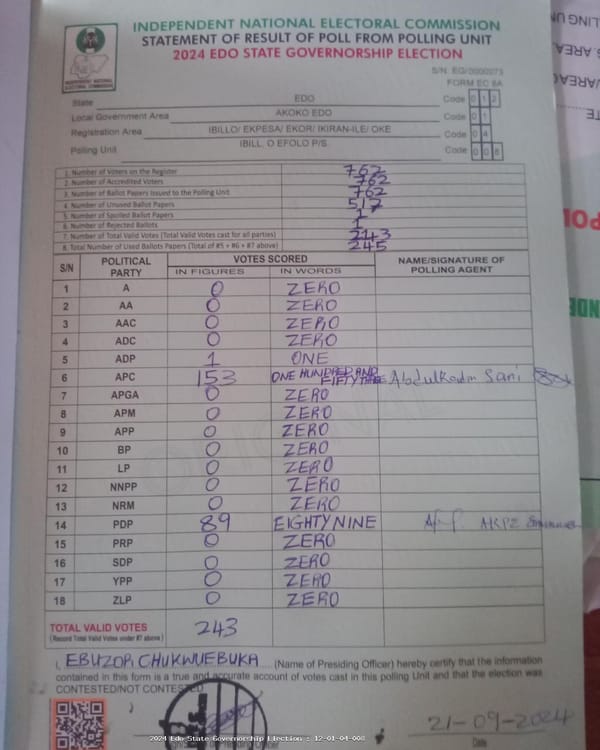 INDEPENDENT NATIONAL ELECTORAL COMMISSION
STATEMENT OF RESULT OF POLL FROM POLLING UNIT
2024 EDO STATE GOVERNORSHIP ELECTION
INDEPENDENT NATIONAL ELECTORAL COMMISSION
S/N. EG/0000073
FORM EC 8A
State EDO Code 0 1 2
Local Government Area AKOKO EDO Code 0 1
Registration Area IBILLO/ EKPESA/ EKOR/ IKIRAN-ILE/ OKE Code 0 4
Polling Unit IBILL. O EFOLO P/S. Code 0 0 8
1. Number of Voters on the Register 762
2. Number of Accredited Voters 762
3. Number of Ballot Papers Issued to the Polling Unit 762
4. Number of Unused Ballot Papers 517
5. Number of Spoiled Ballot Papers 1
6. Number of Rejected Ballots 1
7. Number of Total Valid Votes (Total Valid Votes cast for all parties) 243
8. Total Number of Used Ballots Papers (Total of #5 + #6 + #7 above) 245
S/N POLITICAL PARTY VOTES SCORED NAME/SIGNATURE OF POLLING AGENT
IN FIGURES IN WORDS
1 A 0 ZERO
2 AA 0 ZERO
3 AAC 0 ZERO
4 ADC 0 ZERO
5 ADP 1 ONE
6 APC 153 ONE HUNDRED AND FIFTY THREE Sani
7 APGA 0 ZERO
8 APM 0 ZERO
9 APP 0 ZERO
10 BP 0 ZERO
11 LP 0 ZERO
12 NNPP 0 ZERO
13 NRM 0 ZERO
14 PDP 89 EIGHTY NINE
15 PRP 0 ZERO
16 SDP 0 ZERO
17 YPP 0 ZERO
18 ZLP 0 ZERO
TOTAL VALID VOTES 243
(Record Total Valid Votes under #7 above)
I, EBUZOR CHUKWUEBUKA (Name of Presiding Officer) hereby certify that the information
contained in this form is a true and accurate account of votes cast in this polling Unit and that the election was
CONTESTED/NOT CONTESTED
21-09-2024
Date
2024 Edo State Governorship Election : 12-01-04-008